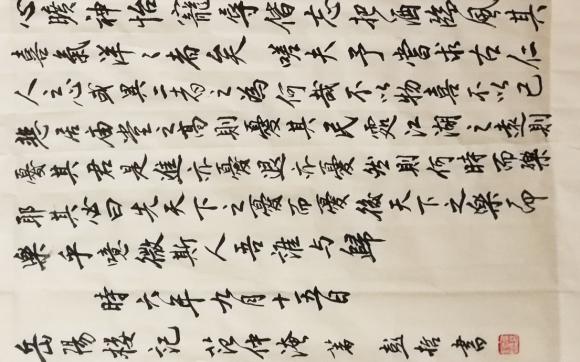 心曠神怡寵辱偕忘把酒臨風其
喜氣洋々者矣 嗟夫予嘗求古仁
人之心或異二者之為何哉不以物喜不以己
悲居廟堂之高則憂其民處江湖之遠則
憂其君是進亦憂退亦憂然則何時而樂
耶其必曰先天下之憂而憂後天下之樂而
樂乎噫微斯人吾誰与歸
時六年九月十五日
岳陽楼記 范仲淹 哲書